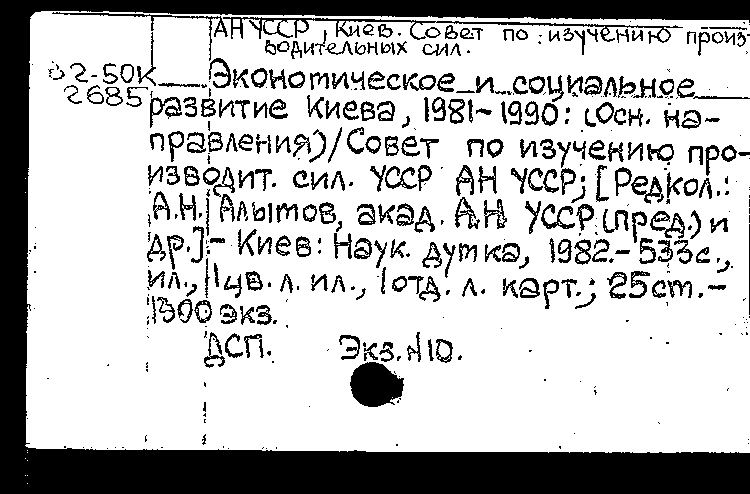 АН УССР, Киев. Совет по изучению произ-
водительных сил.
82-50К
2685
Экономическое и социальное
развитие Киева, 1981-1990: (Осн. на-
правления)/Совет по изучению про-
изводит. сил. УССР АН УССР; [Редкол.:
А.Н. Алымов, акад. АН УССР (пред.) и
др.] - Киев: Наук. думка, 1982.- 533с.,
ил., 1цв. л. ил., 1отд. л. карт.; 25см.-
1300 экз.
ДСП. Экз. №10.